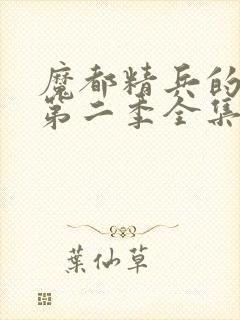 魔都精兵的
第二季全集
葉仙草